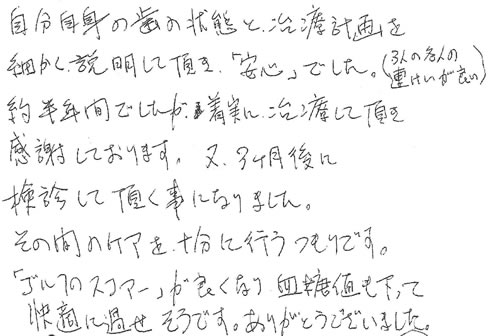 自分自身の歯の状態と、治療計画を
細かく説明して頂き、「安心」でした。(3人の各人の
連けいが良い)
約半年間でしたが着実に治療して頂き
感謝しております。又、3ヶ月後に
検診して頂く事になりました。
その間のケアを、十分に行うつもりです。
「ゴルフのスコアー」が良くなり、血糖値も下って
快適に過せそうです。ありがとうございました